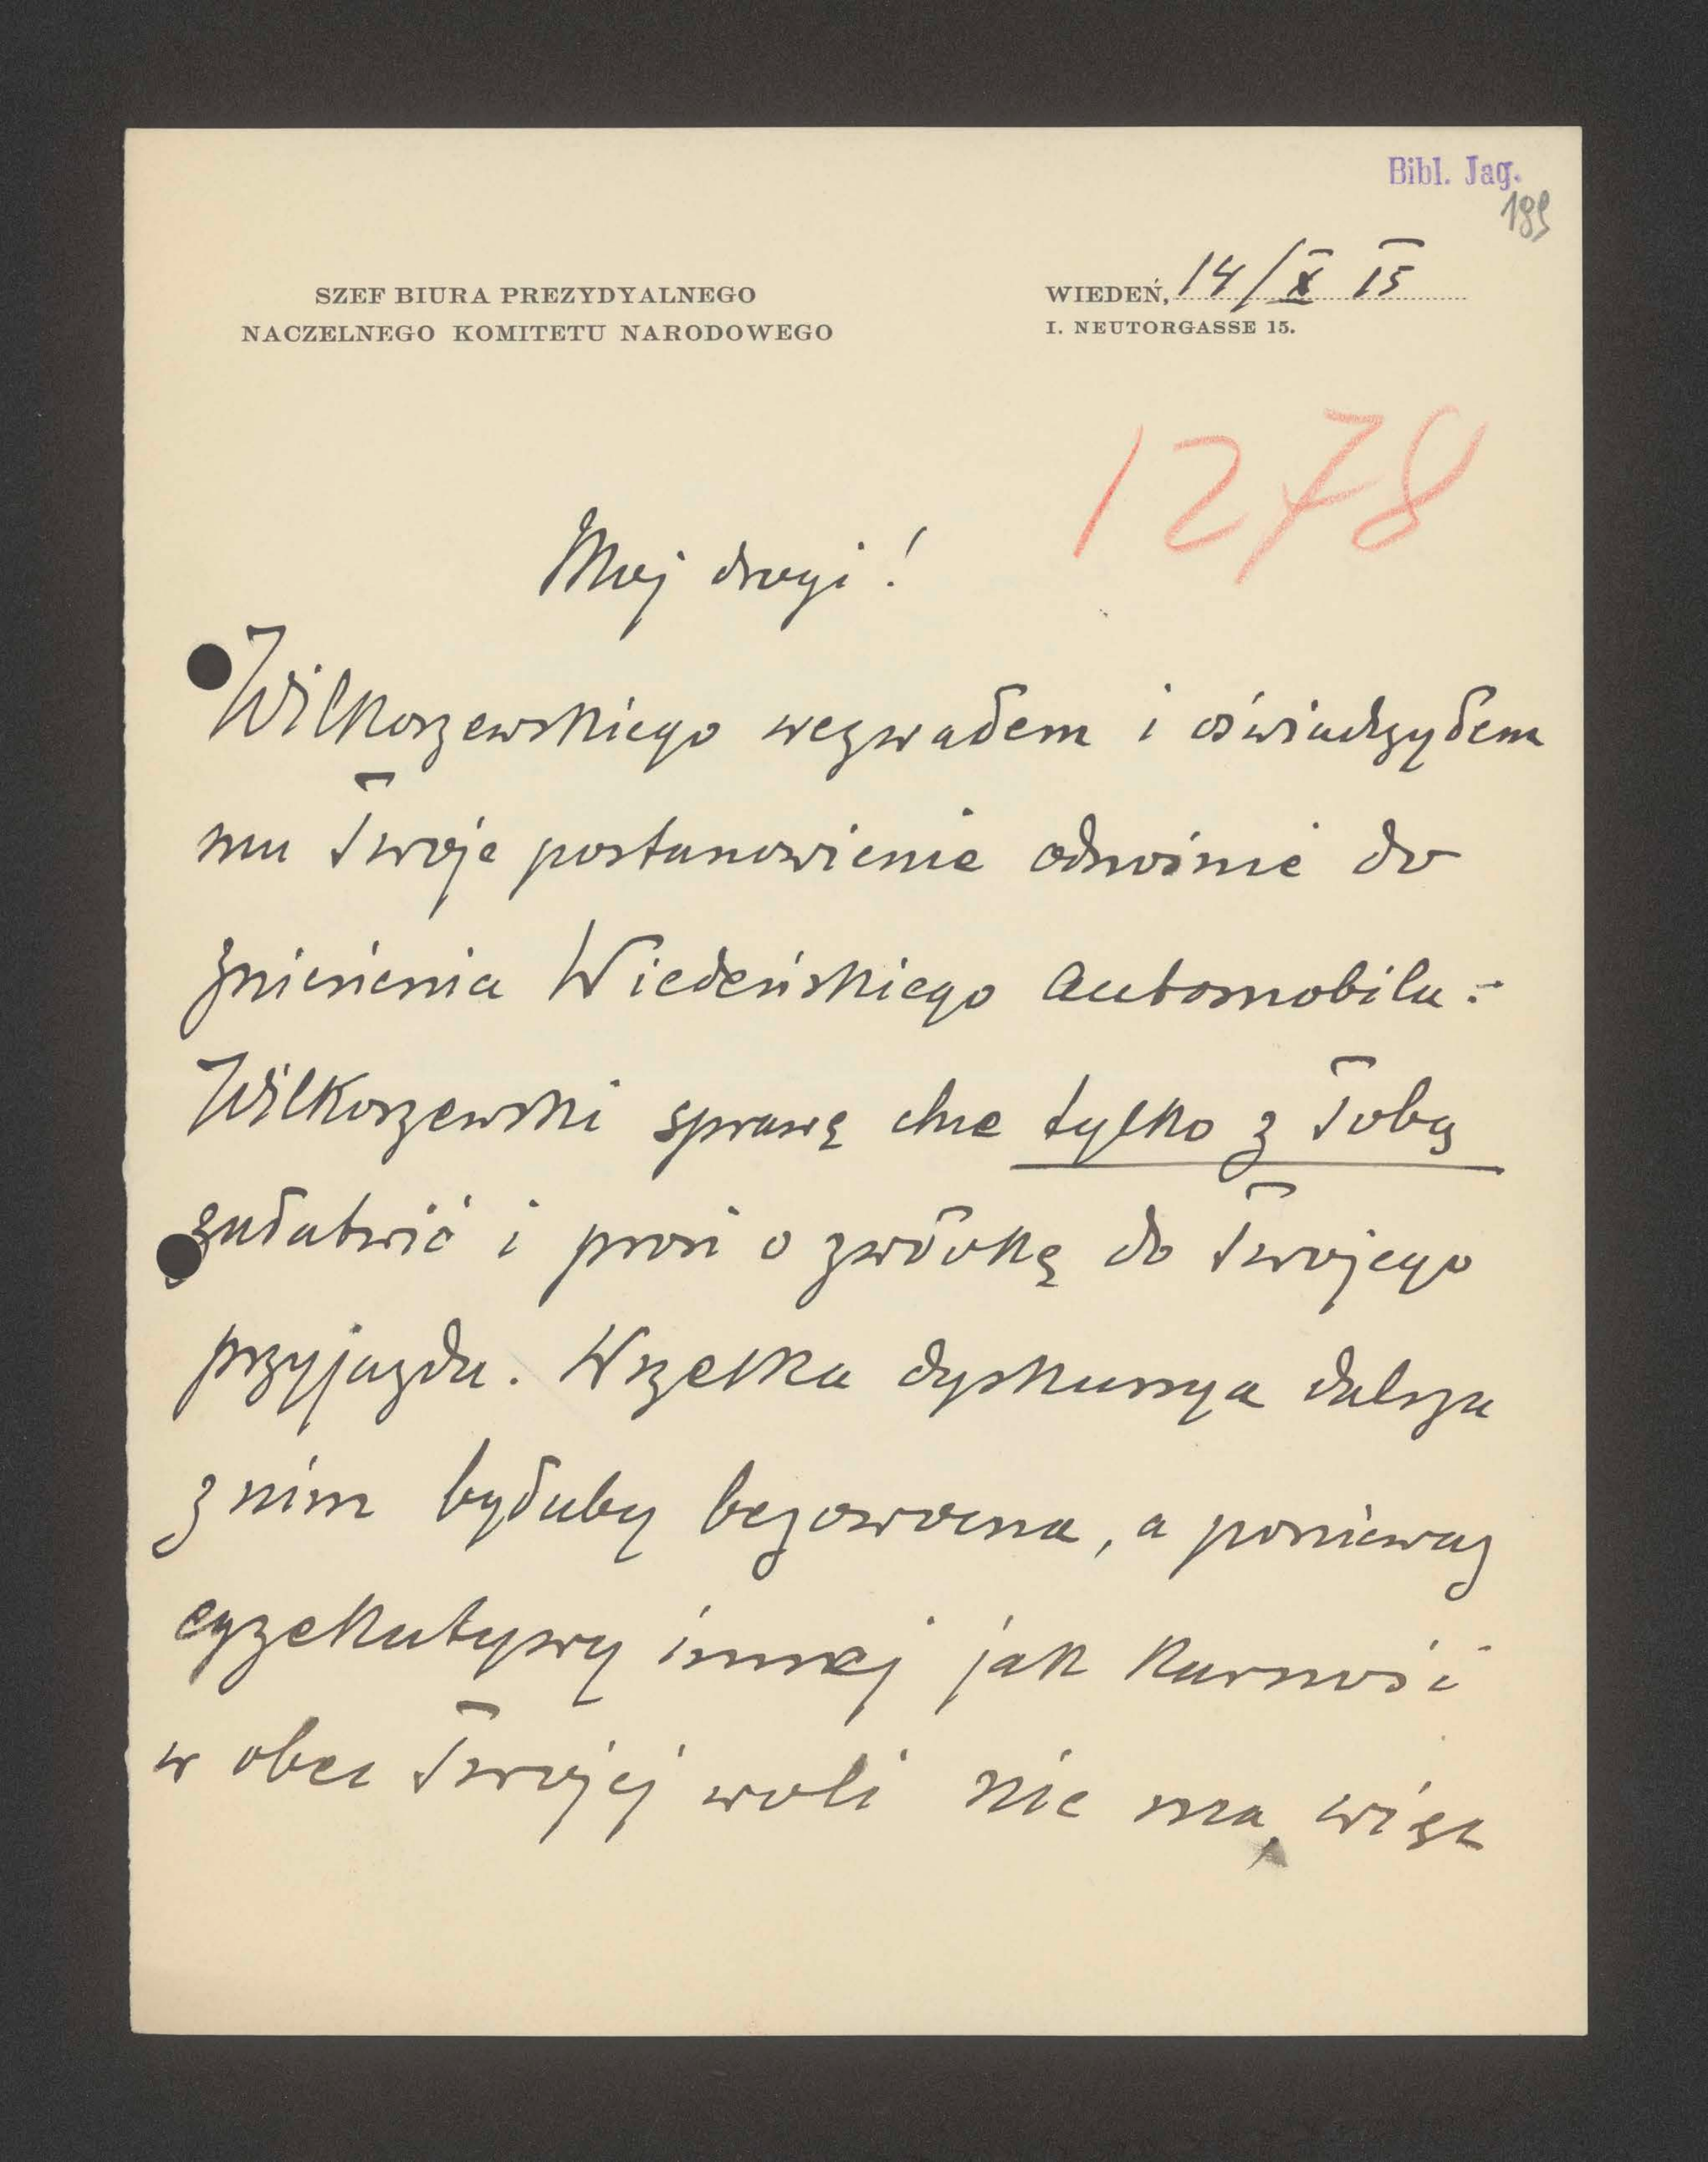 Bibl. Jag.
189
SZEF BIURA PREZYDYALNEGO
NACZELNEGO KOMITETU NARODOWEGO
WIEDEŃ, 14/X 15
I. NEUTORGASSE 15.
1278
Moj drogi!
Wilkoszewskiego wezwałem i oświadczyłem
mu Twoje postanowienie odnośnie do
zniesienia Wiedeńskiego Automobilu:-
Wilkoszewski sprawę chce tylko z Tobą
załatwić i prosi o zwłokę do Twojego
przyjazdu. Wszelka dyskussya dalsza
z nim byłaby bezowocna, a poniewaz
egzekutywy innej jak karność
w obec Twojej woli nie ma, więc